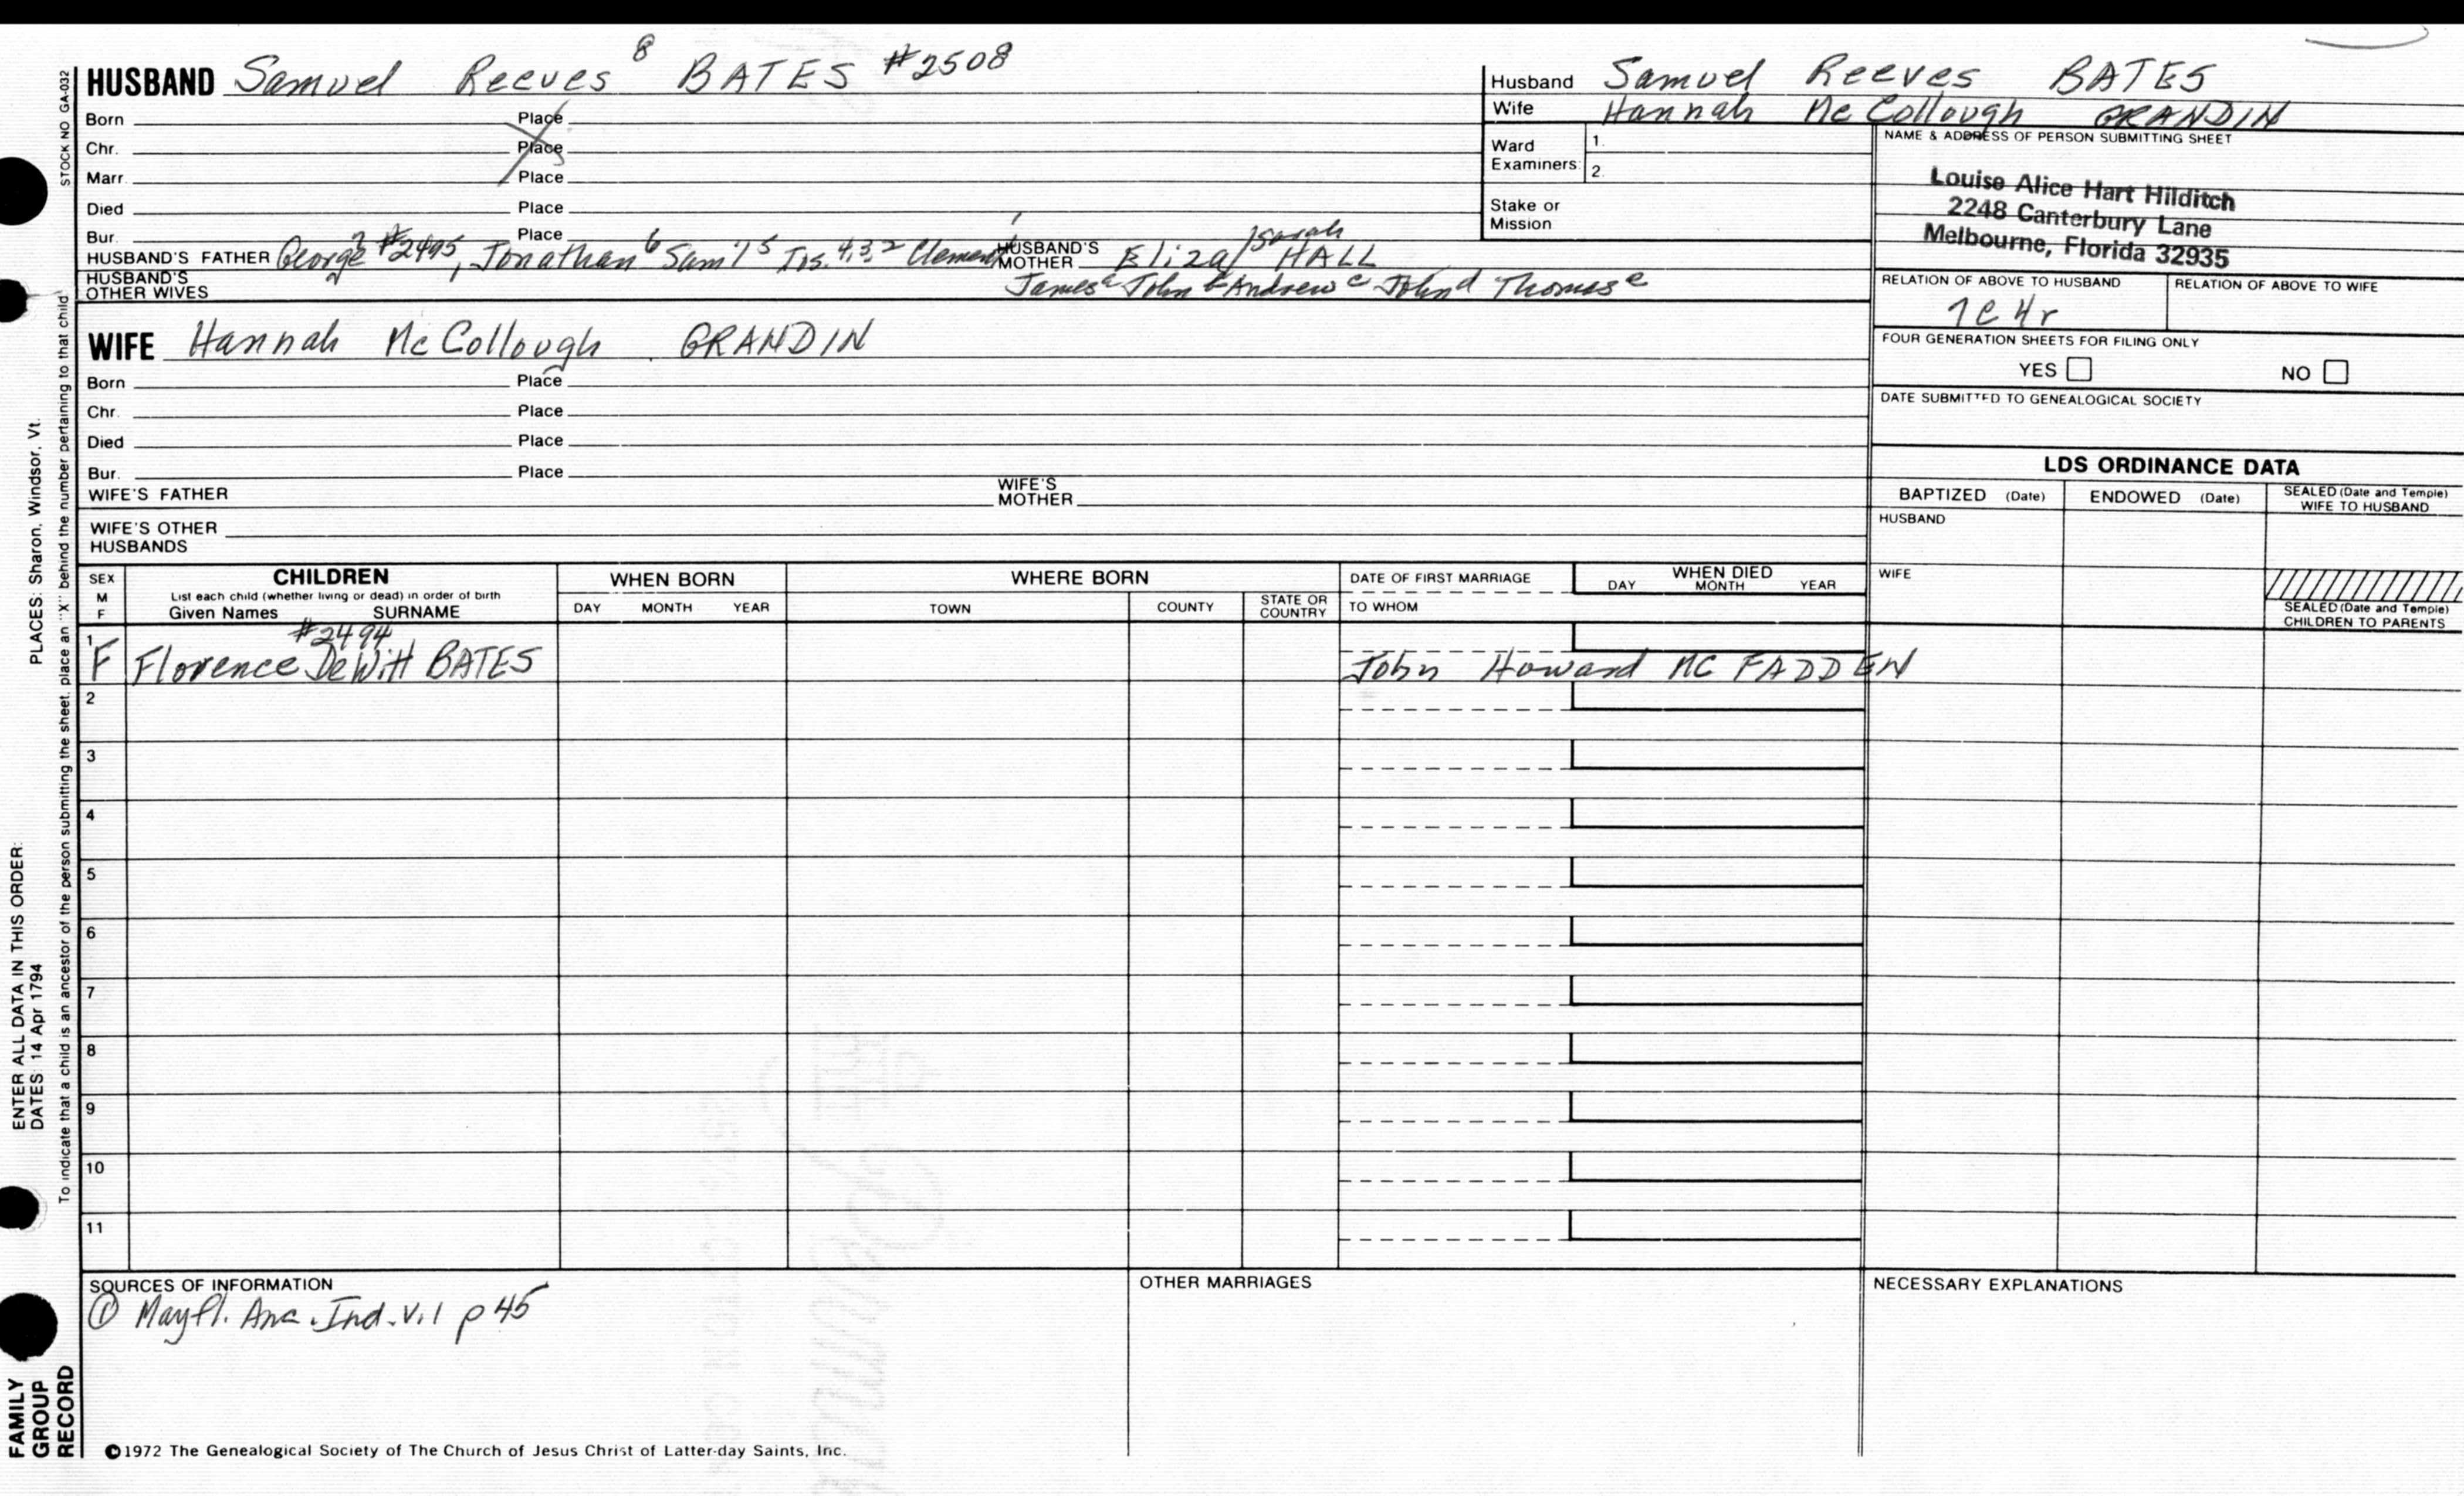 HUSBAND Samuel Reeves 8 BATES #2508
Born Place
Chr. Place
Marr. Place
Died Place
Bur. Place
HUSBAND'S FATHER George 7 #2495, Jonathan 6 Sam'l 5 Jos. 4,3,2 Clement 1 HUSBAND'S MOTHER Eliza / Sarah HALL
HUSBAND'S OTHER WIVES James a John b Andrew c John d Thomas e
Husband Samuel Reeves BATES
Wife Hannah Mc Collough GRANDIN
Ward Examiners: 1. 2.
Stake or Mission
NAME & ADDRESS OF PERSON SUBMITTING SHEET
Louise Alice Hart Hilditch
2248 Canterbury Lane
Melbourne, Florida 32935
RELATION OF ABOVE TO HUSBAND RELATION OF ABOVE TO WIFE
7C4r
FOUR GENERATION SHEETS FOR FILING ONLY
YES NO
DATE SUBMITTED TO GENEALOGICAL SOCIETY
WIFE Hannah Mc Collough GRANDIN
Born Place
Chr. Place
Died Place
Bur. Place
WIFE'S FATHER WIFE'S MOTHER
WIFE'S OTHER HUSBANDS
LDS ORDINANCE DATA
BAPTIZED (Date) ENDOWED (Date) SEALED (Date and Temple) WIFE TO HUSBAND
HUSBAND
WIFE
SEALED (Date and Temple) CHILDREN TO PARENTS
SEX M F
CHILDREN
List each child (whether living or dead) in order of birth
Given Names SURNAME
WHEN BORN
DAY MONTH YEAR
WHERE BORN
TOWN COUNTY STATE OR COUNTRY
DATE OF FIRST MARRIAGE
TO WHOM
WHEN DIED
DAY MONTH YEAR
#2494
1 F Florence DeWitt BATES John Howard MC FADDEN
2
3
4
5
6
7
8
9
10
11
SOURCES OF INFORMATION
① Mayfl. Anc. Ind. V.1 p 45
OTHER MARRIAGES
NECESSARY EXPLANATIONS
©1972 The Genealogical Society of The Church of Jesus Christ of Latter-day Saints, Inc.
STOCK NO GA-032
To indicate that a child is an ancestor of the person submitting the sheet, place an "X" behind the number pertaining to that child.
ENTER ALL DATA IN THIS ORDER:
DATES: 14 Apr 1794 PLACES: Sharon, Windsor, Vt.
FAMILY
GROUP
RECORD